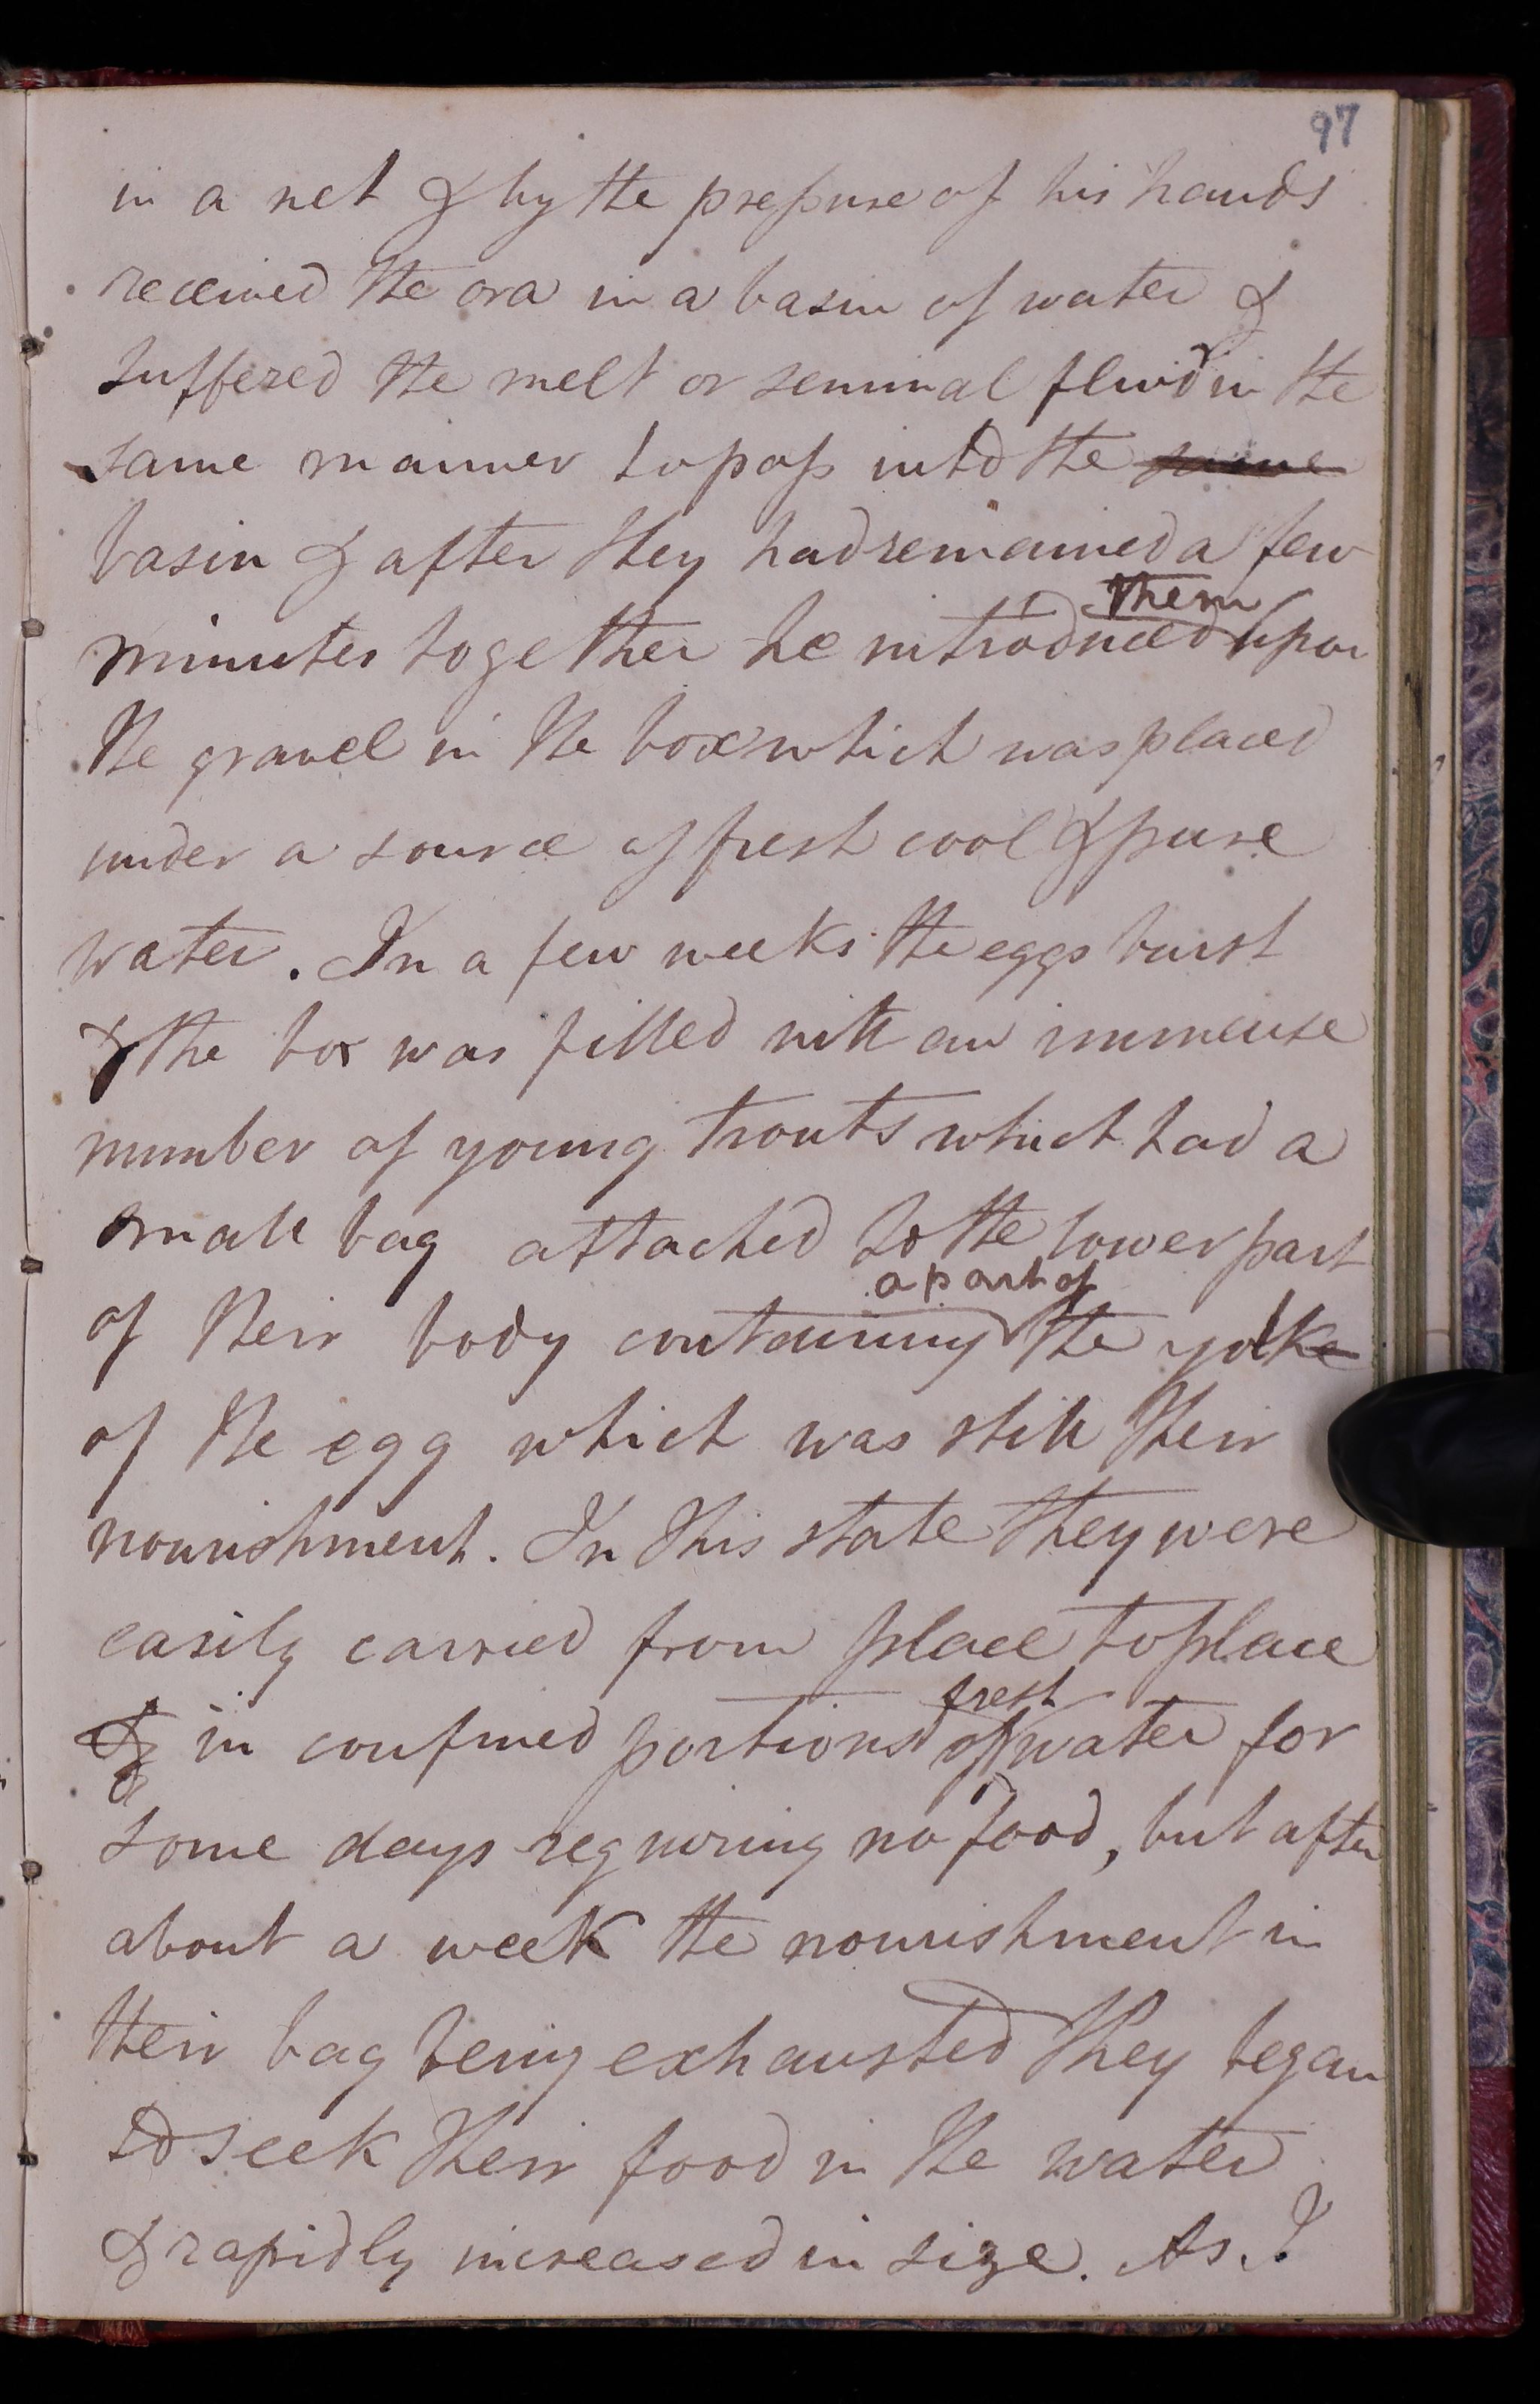 97
in a net & by the pressure of his hands
received the ova in a basin of water &
suffered the melt or seminal fluid in the
same manner to pass into the same
basin & after they had remained a few
them
minutes together he introduced upon
the gravel in the box which was placed
under a source of fresh cool & pure
water. In a few weeks the eggs burst
& the box was filled with an immense
number of young trouts which had a
small bag attached to the lower part
a part of
of their body containing the yolke
of the egg which was still their
nourishment. In this state they were
easily carried from place to place
fresh
& in confined portions of water for
some days requiring no food, but after
about a week the nourishment in
their bag being exhausted they began
to seek their food in the water
& rapidly increased in size. As I